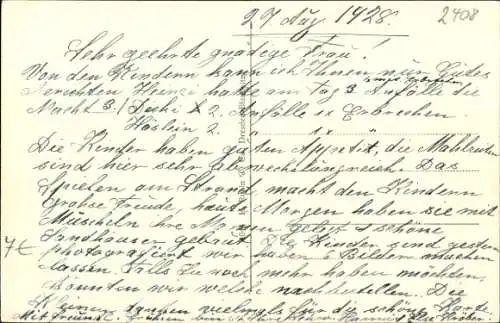 27 Aug. 1928.
2408
Sehr geehrte gnädige Frau!
Von den Kindern kann ich Ihnen nur Gutes
berichten Heinzi hatte am Tag 3 Anfälle die
Nacht 3. / Suchi 2 Anfälle Erbrechen.
Häslein 2. " " "
Die Kinder haben guten Appetit, die Mahlzeiten
sind hier sehr abwechslungreich. Das
Spielen am Strand macht den Kindern
Grohse Freude, heute Morgen haben sie mit
Muscheln ihre Namen gelegt schöne
Sandhausen gebaut. Die Kinder sind gestern
photografiert wir haben 6 Bilder machen
lassen. Falls Sie noch mehr haben möchten,
könnten wir welche nachbestellen. Die
Kleinen danken vielmals für die schöne Karte
Mit freundl. Grüßen
7€